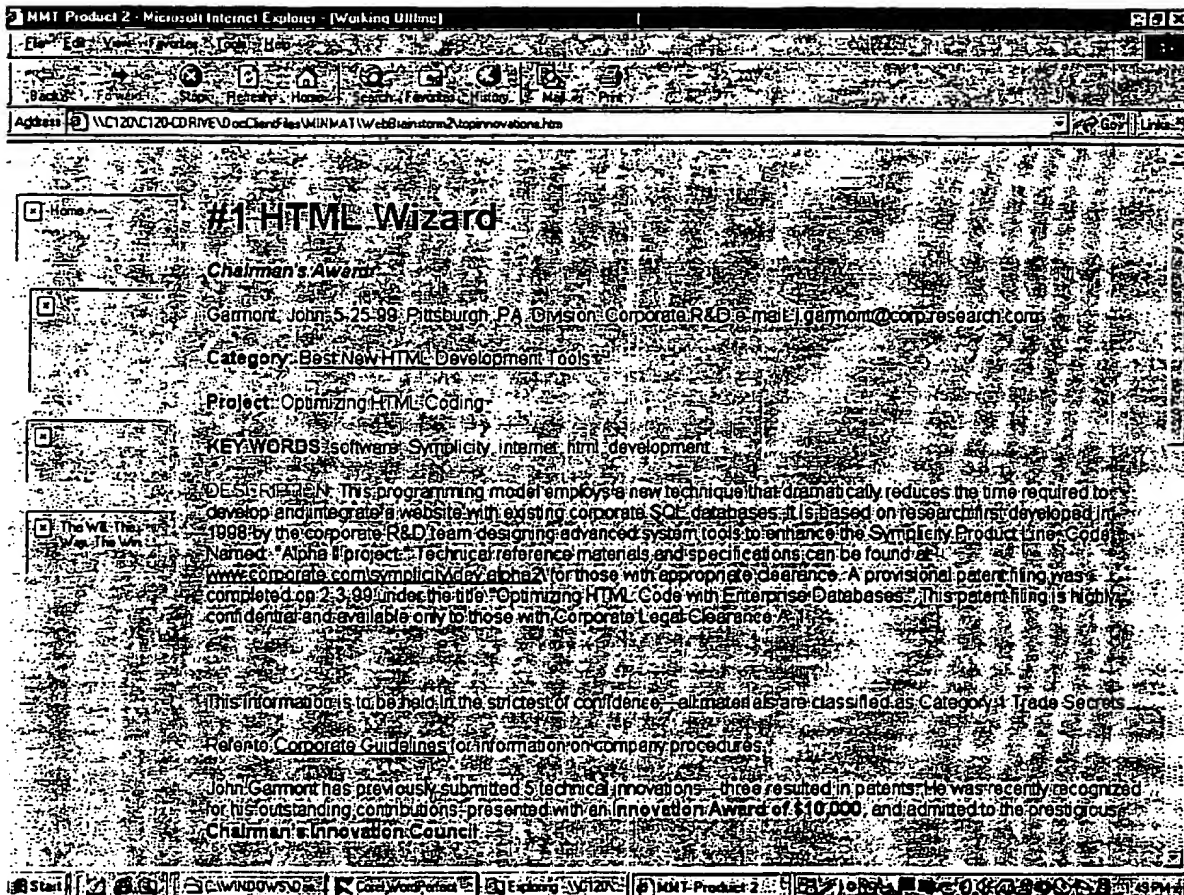 MMT Product 2 - Microsoft Internet Explorer - [Working Offline]
File Edit View Favorites Tools Help
Back Forward Stop Refresh Home Search Favorites History Mail Print
Address \\C120\C120-CDRIVE\DocClientFiles\MINMAT\WebBrainstorm2\topinnovations.htm Go Links
Home
#1 HTML Wizard
Chairman's Award
Garmont, John 5-25-99 Pittsburgh, PA Division: Corporate R&D e-mail: j.garmont@corp.research.com
Category: Best New HTML Development Tools
Project: Optimizing HTML Coding
KEY WORDS: software, Symplicity, internet, html, development
DESCRIPTION: This programming model employs a new technique that dramatically reduces the time required to
develop and integrate a website with existing corporate SQL databases. It is based on research first developed in
1998 by the corporate R&D team designing advanced system tools to enhance the Symplicity Product Line. Code
Named: "Alpha II project." Technical reference materials and specifications can be found at
www.corporate.com\symplicity\dev.alpha2\ for those with appropriate clearance. A provisional patent filing was
completed on 2-3-99 under the title "Optimizing HTML Code with Enterprise Databases." This patent filing is highly
confidential and available only to those with Corporate Legal Clearance A-1.
The Will, The
Way, The Win
This information is to be held in the strictest of confidence—all materials are classified as Category 1 Trade Secrets.
Refer to Corporate Guidelines for information on company procedures.
John Garmont has previously submitted 5 technical innovations—three resulted in patents. He was recently recognized
for his outstanding contributions, presented with an Innovation Award of $10,000, and admitted to the prestigious
Chairman's Innovation Council.
Start C:\WINDOWS\Des... Corel WordPerfect Exploring - \\C120\... MMT Product 2